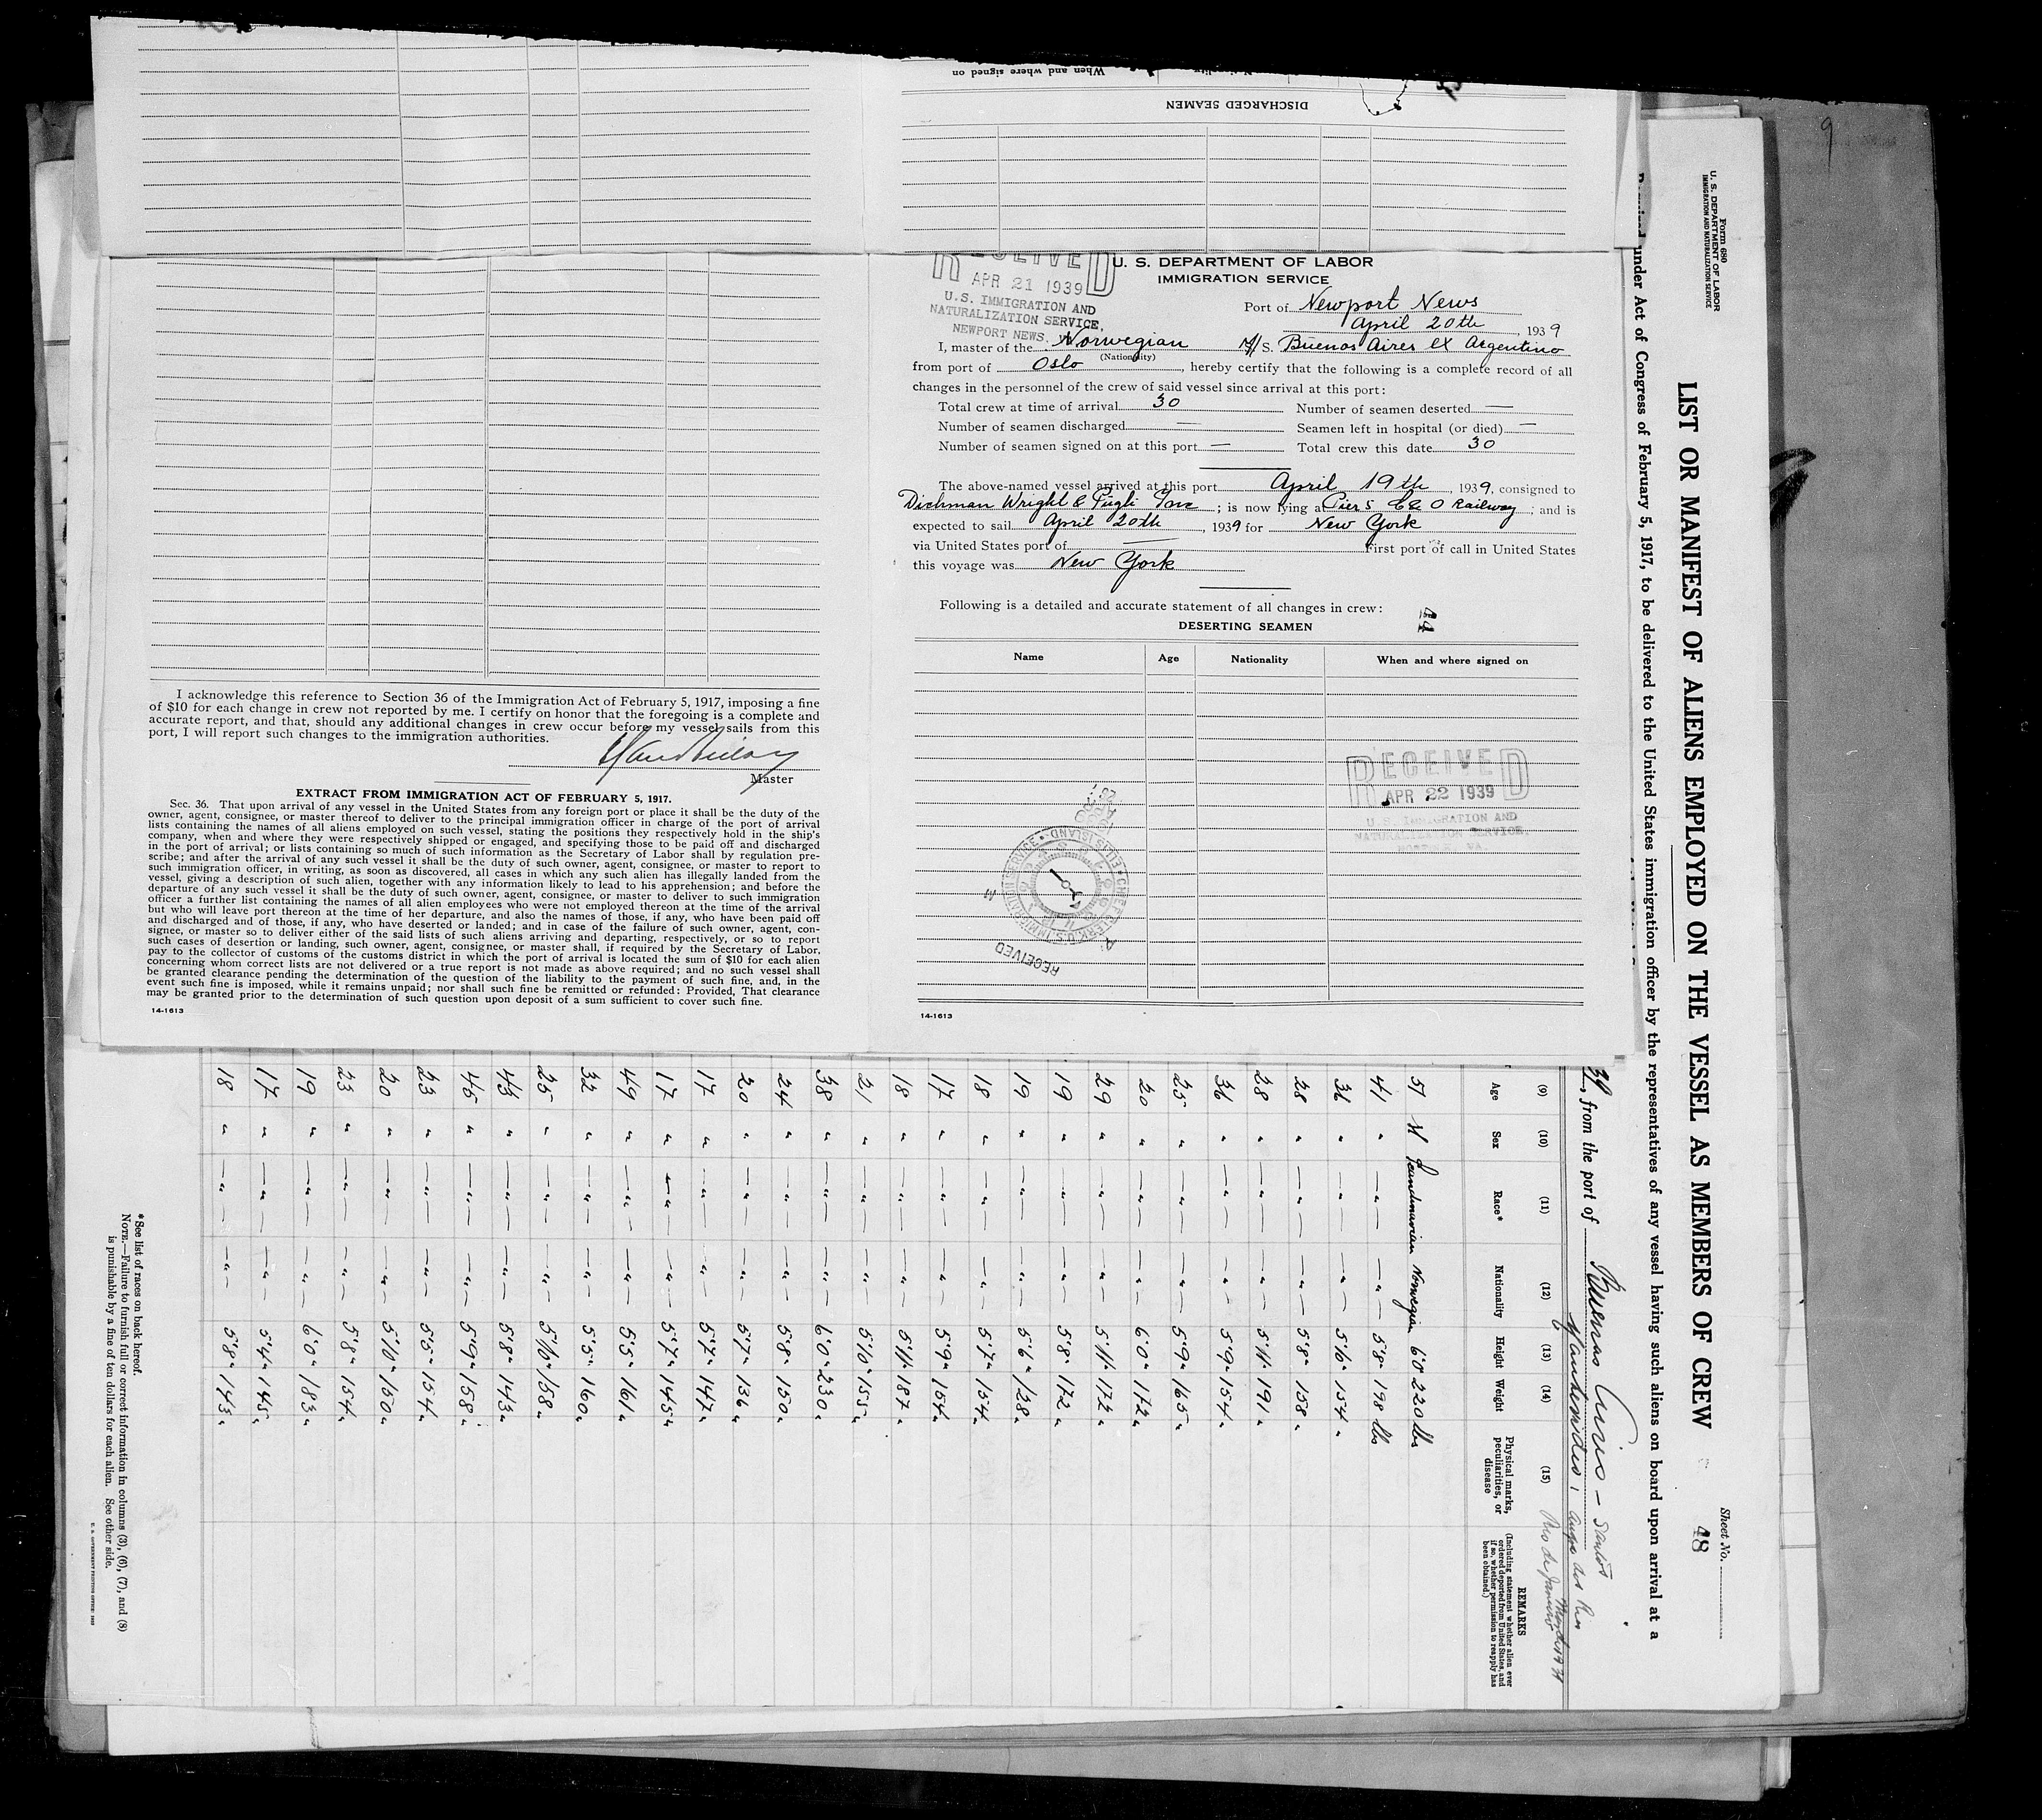 When and where signed on
DISCHARGED SEAMEN
RECEIVED
APR 21 1939
U.S. IMMIGRATION AND
NATURALIZATION SERVICE,
NEWPORT NEWS,
U. S. DEPARTMENT OF LABOR
IMMIGRATION SERVICE
Port of Newport News
April 20th, 1939
I, master of the Norwegian M/S. Buenos Aires ex Argentino
(Nationality)
from port of Oslo, hereby certify that the following is a complete record of all
changes in the personnel of the crew of said vessel since arrival at this port:
Total crew at time of arrival 30 Number of seamen deserted —
Number of seamen discharged — Seamen left in hospital (or died) —
Number of seamen signed on at this port — Total crew this date 30
The above-named vessel arrived at this port April 19th, 1939, consigned to
Dichman Wright & Pugh Inc; is now lying at Pier 5 C & O Railway; and is
expected to sail April 20th, 1939 for New York
via United States port of — First port of call in United States
this voyage was New York
Following is a detailed and accurate statement of all changes in crew:
44
DESERTING SEAMEN
Name Age Nationality When and where signed on
RECEIVED
APR 22 1939
U.S. IMMIGRATION AND
NATURALIZATION SERVICE,
RECEIVED
14-1613
I acknowledge this reference to Section 36 of the Immigration Act of February 5, 1917, imposing a fine
of $10 for each change in crew not reported by me. I certify on honor that the foregoing is a complete and
accurate report, and that, should any additional changes in crew occur before my vessel sails from this
port, I will report such changes to the immigration authorities.
Master
EXTRACT FROM IMMIGRATION ACT OF FEBRUARY 5, 1917.
Sec. 36. That upon arrival of any vessel in the United States from any foreign port or place it shall be the duty of the
owner, agent, consignee, or master thereof to deliver to the principal immigration officer in charge of the port of arrival
lists containing the names of all aliens employed on such vessel, stating the positions they respectively hold in the ship's
company, when and where they were respectively shipped or engaged, and specifying those to be paid off and discharged
in the port of arrival; or lists containing so much of such information as the Secretary of Labor shall by regulation pre-
scribe; and after the arrival of any such vessel it shall be the duty of such owner, agent, consignee, or master to report to
such immigration officer, in writing, as soon as discovered, all cases in which any such alien has illegally landed from the
vessel, giving a description of such alien, together with any information likely to lead to his apprehension; and before the
departure of any such vessel it shall be the duty of such owner, agent, consignee, or master to deliver to such immigration
officer a further list containing the names of all alien employees who were not employed thereon at the time of the arrival
but who will leave port thereon at the time of her departure, and also the names of those, if any, who have been paid off
and discharged and of those, if any, who have deserted or landed; and in case of the failure of such owner, agent, con-
signee, or master so to deliver either of the said lists of such aliens arriving and departing, respectively, or so to report
such cases of desertion or landing, such owner, agent, consignee, or master shall, if required by the Secretary of Labor,
pay to the collector of customs of the customs district in which the port of arrival is located the sum of $10 for each alien
concerning whom correct lists are not delivered or a true report is not made as above required; and no such vessel shall
be granted clearance pending the determination of the question of the liability to the payment of such fine, and, in the
event such fine is imposed, while it remains unpaid; nor shall such fine be remitted or refunded: Provided, That clearance
may be granted prior to the determination of such question upon deposit of a sum sufficient to cover such fine.
14-1613
9
Form 680
U. S. DEPARTMENT OF LABOR
IMMIGRATION AND NATURALIZATION SERVICE
Sheet No.
LIST OR MANIFEST OF ALIENS EMPLOYED ON THE VESSEL AS MEMBERS OF CREW
48
under Act of Congress of February 5, 1917, to be delivered to the United States immigration officer by the representatives of any vessel having such aliens on board upon arrival at a
39, from the port of Buenos Aires - Santos
Montevideo, Angra dos Reis
Rio de Janeiro
(9) (10) (11) (12) (13) (14) (15)
Age Sex Race* Nationality Height Weight Physical marks, peculiarities, or disease REMARKS
(Including statement whether alien ever ordered deported from United States, and if so, whether permission to reapply has been obtained.)
51 M Scandinavian Norwegian 6'0 220 lbs
41 " — " — — " — 5'8 198 lbs
36 " — " — — " — 5'6 154 "
28 " — " — — " — 5'8" 158 "
28 " — " — — " — 5'11" 191 "
36 " — " — — " — 5'9" 154 "
25 " — " — — " — 5'9" 165 "
20 " — " — — " — 6'0" 172 "
29 " — " — — " — 5'11" 172 "
19 " — " — — " — 5'8" 172 "
19 " — " — — " — 5'6" 128 "
18 " — " — — " — 5'7" 154 "
17 " — " — — " — 5'9" 154 "
18 " — " — — " — 5'11" 187 "
21 " — " — — " — 5'10" 155 "
38 " — " — — " — 6'0" 230 "
24 " — " — — " — 5'8" 150 "
20 " — " — — " — 5'7" 136 "
17 " — " — — " — 5'7" 147 "
17 " — " — — " — 5'7" 145 "
49 " — " — — " — 5'5" 161 "
32 " — " — — " — 5'5" 160 "
25 " — " — — " — 5'10" 158 "
43 " — " — — " — 5'8" 143 "
45 " — " — — " — 5'9" 158 "
23 " — " — — " — 5'5" 154 "
20 " — " — — " — 5'10" 150 "
23 " — " — — " — 5'8" 154 "
19 " — " — — " — 6'0" 183 "
17 " — " — — " — 5'4" 145 "
18 " — " — — " — 5'8" 143 "
*See list of races on back hereof.
NOTE.—Failure to furnish full or correct information in columns (3), (6), (7), and (8)
is punishable by a fine of ten dollars for each alien. See other side.